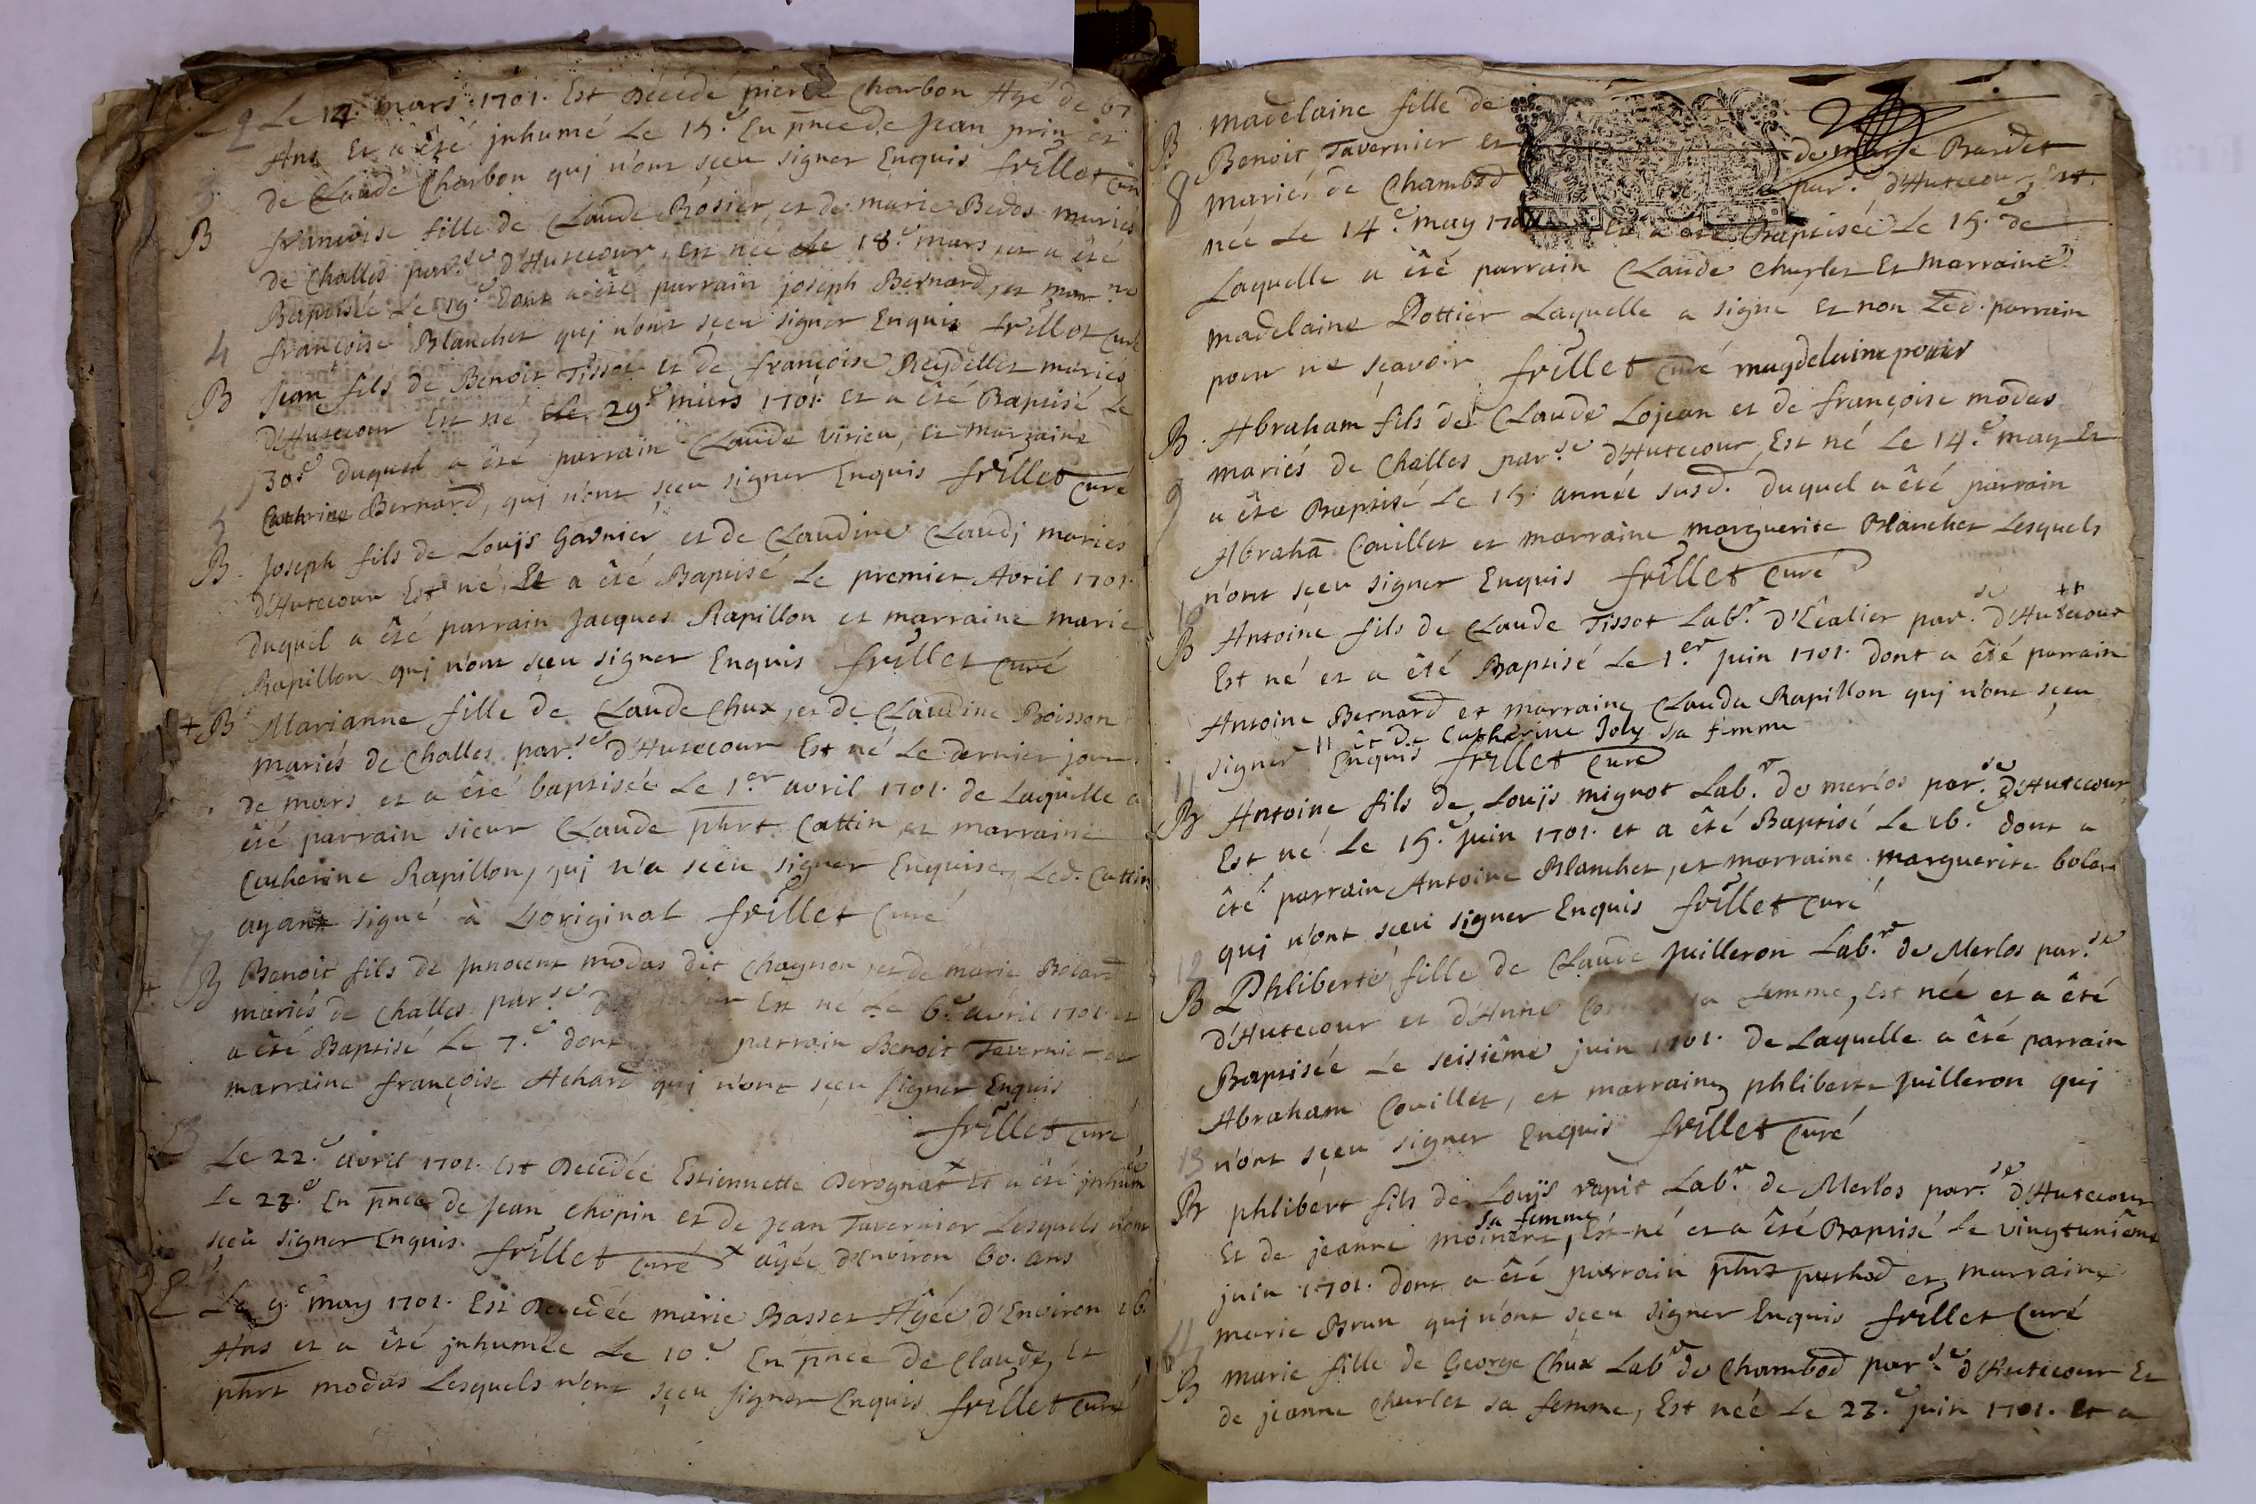 2 Le 14.e mars 1701. Est Décédé pierre Charbon Agé de 67
Ans Et a êté jnhumé Le 15.e En pnce de Jean prin et
de Claude Charbon quj n'ont sçeu signer Enquis frillet Curé
B françoise fille de Claude Rosier, et de marie Bedos mariés
de Challes par.se d'Hutecour, Est née Le 18.e mars et a êté
Baptisée Le 19.e Dont a êté parrain joseph Bernard, et marne
françoise Blanchet quj n'ont sçeu signer Enquis frillet Curé
4
B Jean fils de Benoit Tissot et de françoise Reydellet mariés
d'Hutecour Est né Le 29.e mars 1701. et a êté Baptisé Le
30.e Duquel a êté parrain Claude Virieu, et marraine
Cathrine Bernard, quj n'ont sçeu signer Enquis frillet Curé
5
B. Joseph fils de Louijs Gadnier et de Claudine Claudj mariés
d'Hutecour Est né, Et a êté Baptisé Le premier Avril 1701.
Duquel a êté parrain Jacques Rapillon et marraine marie
Rapillon quj n'ont sçeu signer Enquis frillet Curé
+B Marianne fille de Claude Chux, et de Claudine Boisson
mariés de Challes par.se d'Hutecour Est né Le dernier jour
de mars et a êté baptisée Le 1.er avril 1701. de Laquelle a
êté parrain sieur Claude phrt Cattin et marraine
Catherine Rapillon, quj n'a sçeu signer Enquise, Led. Cattin
ayant signé à Loriginal frillet Curé
7
+ B Benoit fils de Jnnocent modas dit Chagnon et de marie Bolard
mariés de Challes par.se Est né Le 6.e avril 1701. et
a êté Baptisé Le 7.e dont parrain Benoit Tavernier et
marraine françoise Achard quj n'ont sçeu signer Enquis
frillet Curé
Le 22.e avril 1701. Est Decedée Estiennette Derognat x Et a êté jnhumée
Le 23.e En pnce de Jean Chopin et de Jean Tavernier Lesquels n'ont
sçeu signer Enquis. frillet Curé x agée d'Environ 60. ans
Le 9.e may 1701. Est Decedée marie Basset Agée d'Environ 26.
Ans et a êté jnhumée Le 10.e En pnce de Claude, Et
phrt modas Lesquels n'ont sçeu signer Enquis frillet Curé
B madelaine fille de
Benoit Tavernier et de marie Bardet
8 mariés de Chambod par.e d'Hutecour, Est
née Le 14.e may 1701 Et a êté Baptisée Le 15.e de
Laquelle a êté parrain Claude Charlet Et marraine
madelaine Pottier Laquelle a signé Et non Led. parrain
pour ne sçavoir frillet Curé magdelaine potier
B. Abraham fils de Claude Lojean et de françoise modas
mariés de Challes par.se d'Hutecour, Est né Le 14.e may Et
9 a êté Baptisé Le 15. année susd. duquel a êté parrain
Abrahā Couillet et marraine marguerite Blanchet Lesquels
n'ont sçeu signer Enquis frillet Curé
10
B Antoine fils de Claude Tissot Lab.r d'Ecalier par.se d'Hutecour ++
Est né et a êté Baptisé Le 1.er Juin 1701. Dont a êté parrain
Antoine Bernard et marraine Clauda Rapillon quj n'ont sçeu
signer Enquis frillet Curé
++ et de Catherine Joly sa femme
11
B Antoine fils de Louijs mignot Lab.r de merlos par.se d'Hutecour
Est né Le 15.e Juin 1701. et a êté Baptisé Le 16.e dont a
êté parrain Antoine Blanchet, et marraine marguerite bolard
quj n'ont sçeu signer Enquis frillet Curé
12
B Phliberte fille de Claude Juilleron Lab.r de Merlos par.se
d'Hutecour et d'Anne sa femme, Est née et a êté
Baptisée Le seisiême juin 1701. De Laquelle a êté parrain
Abraham Couillet, et marraine phliberte Juilleron quj
n'ont sçeu signer Enquis frillet Curé
13
B phlibert fils de Louijs rapit Lab.r de Merlos par.se d'Hutecour
Et de jeanne moinere sa femme, Est né et a êté Baptisé Le vingtuniême
juin 1701. dont a êté parrain phrt purhod et marraine
marie Brun quj n'ont sçeu signer Enquis frillet Curé
14
B marie fille de George Chux Lab.r de Chambod par.se d'Hutecour Et
de jeanne Charlet sa femme, Est née Le 23.e juin 1701. Et a